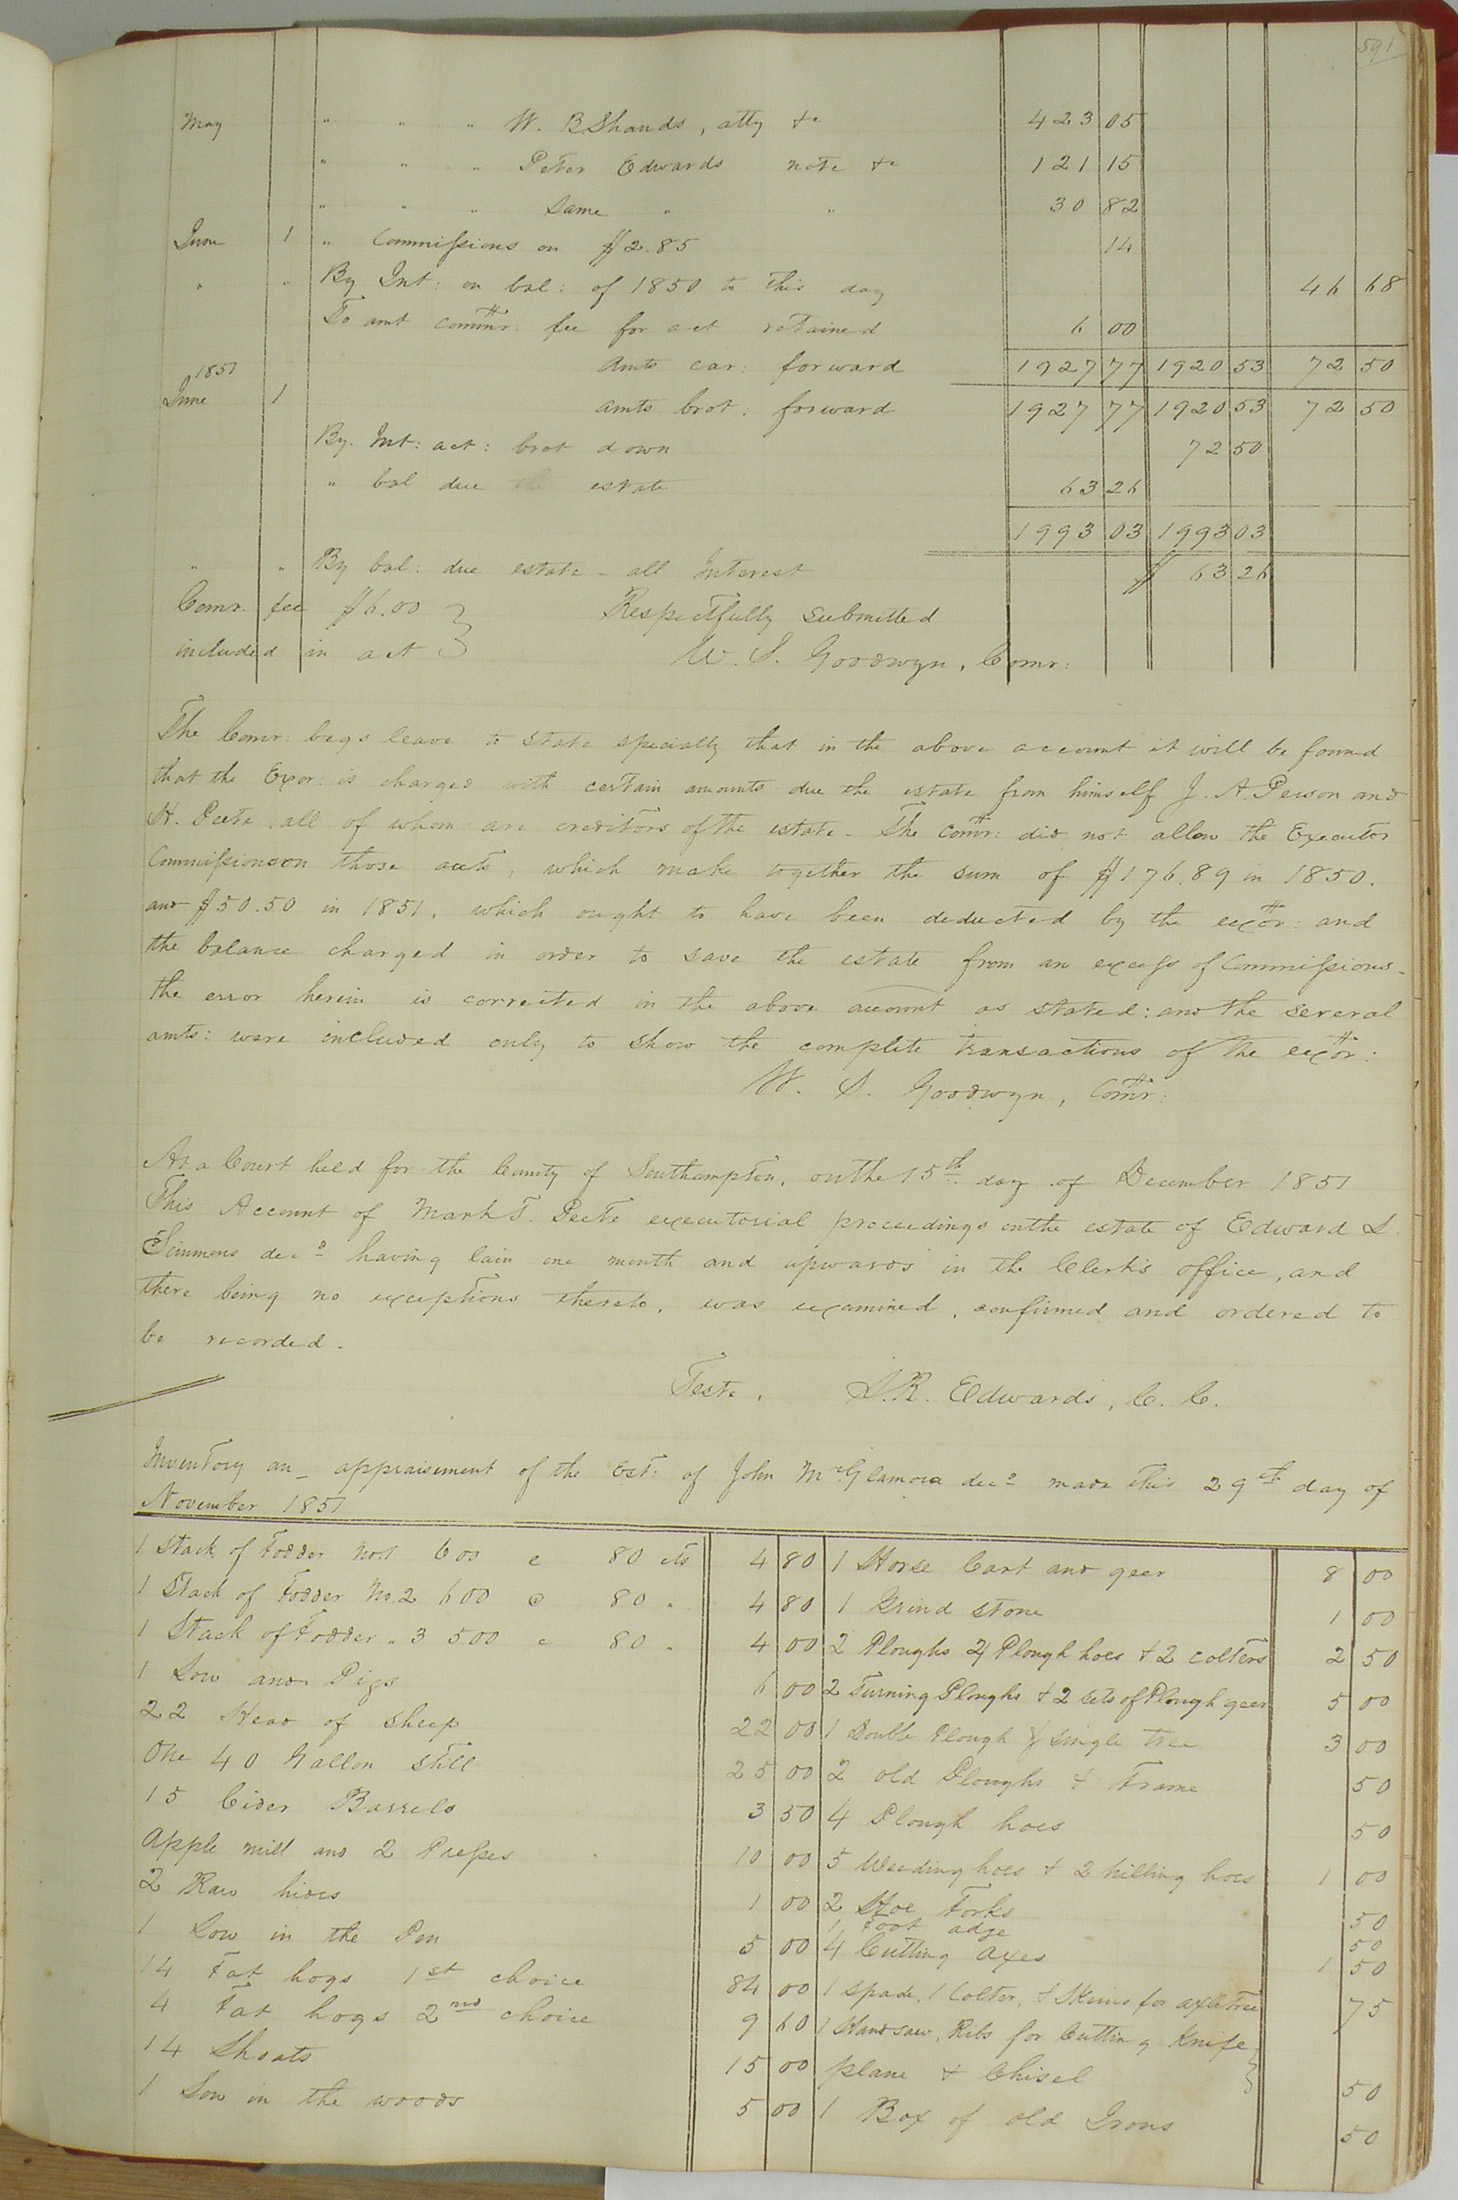 591
May " " " W. B Shands, atty &c 423 05
" " " Peter Edwards note &c 121 15
" " " Same " " 30 82
June 1 " Commissions on $2.85 14
" " By Int: on bal: of 1850 to this day 46 68
To amt commr: fee for act retained 6 00
Amts car: forward 1927 77 1920 53 72 50
1851
June 1 amts brot: forward 1927 77 1920 53 72 50
By. Int: act: brot down 72 50
" bal due the estate 63 26
1993 03 1993 03
" " By bal: due estate - all Interest $ 63 26
Comr. fee $6.00 } Respectfully submitted
included in act } W. S. Goodwyn, Comr:
The Comr: begs leave to state specially that in the above account it will be found
that the Exor: is charged with certain amounts due the estate from himself J. A. Person and
H. Peete, all of whom are creditors of the estate - The comr: did not allow the Executor
Commissions on those accts, which make together the sum of $176.89 in 1850.
and $50.50 in 1851, which ought to have been deducted by the exor: and
the balance charged in order to save the estate from an excess of Commissions -
the error herein is corrected in the above account as stated: and the several
amts: were included only to show the complete transactions of the exor:
W. S. Goodwyn, Comr:
At a Court held for the County of Southampton, on the 15th day of December 1851
This Account of Mark T. Peete executorial proceedings on the estate of Edward S.
Simmons decd having lain one month and upwards in the Clerk's office, and
there being no exceptions thereto, was examined, confirmed and ordered to
be recorded.
Teste, L.R. Edwards, C. C.
Inventory an_ appraisement of the Est: of John McGlamora decd made this 29th day of
November 1851
1 Stack of Fodder No.1 600 @ 80 cts 4 80 1 Horse Cart and geer 8 00
1 Stack of Fodder No. 2 600 @ 80 " 4 80 1 Grind stone 1 00
1 Stack of Fodder " 3 500 @ 80 " 4 00 2 Ploughs 4 Plough hoes & 2 colters 2 50
1 Sow and Pigs 6 00 2 Turning Ploughs & 2 sets of Plough geer 5 00
22 Head of Sheep 22 00 1 Double Plough & single tree 3 00
One 40 Gallon Still 25 00 2 old Ploughs & Frame 50
15 Cider Barrels 3 50 4 Plough hoes 50
Apple mill and 2 Presses 10 00 5 Weeding hoes & 2 hilling hoes 1 00
2 Raw hides 1 00 2 Hoe Forks 50
1 Foot adge 50
1 Sow in the Pen 5 00 4 Cutting axes 1 50
14 Fat hogs 1st choice 84 00 1 spade, 1 Colter, & Skeins for axle Tree 75
4 Fat hogs 2nd choice 9 60 1 Handsaw, Ribs for Cutting Knife }
14 Shoats 15 00 plane & Chisel } 50
1 Sow in the woods 5 00 1 Box of old Irons 50